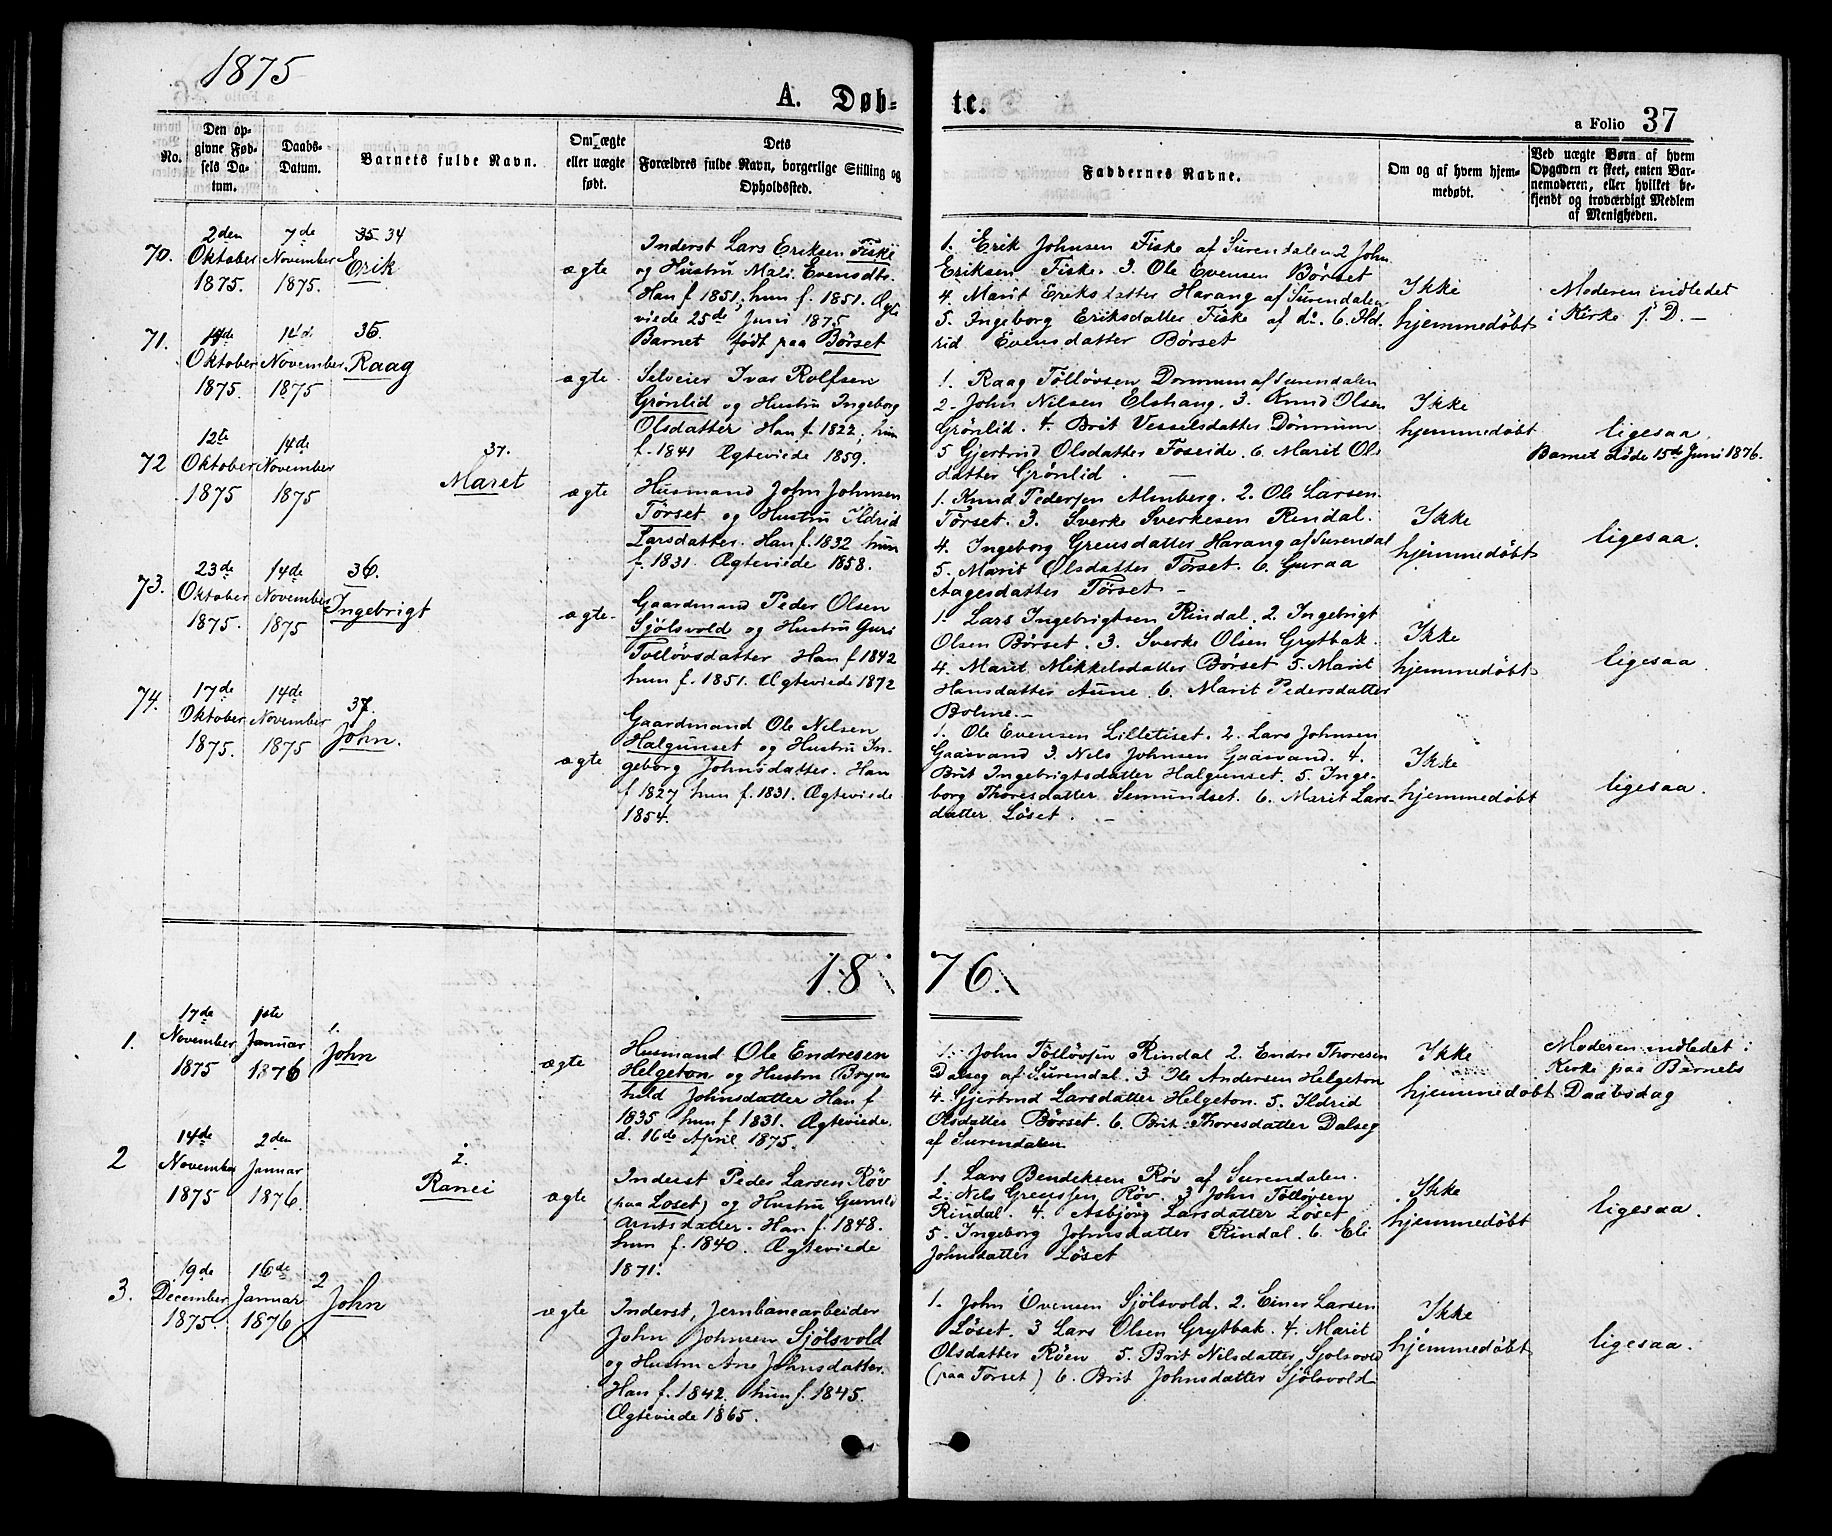 1875
A. Døb-
te.
a Folio 37
No.
Den op-
givne Fød-
sels Da-
tum.
Daabs-
Datum.
Barnets fulde Navn.
Om ægte
eller uægte
født.
Dets
Forældres fulde Navn, borgerlige Stilling og
Opholdssted.
Faddernes Navne.
Om og af hvem hjem-
medøbt.
Ved uægte Børn af hvem
Opgaven er skeet, enten Bar-
nemoderen, eller hvilket be-
kjendt og troværdigt Medlem
af Menigheden.
70.
2den
Oktober
1875.
7de
November
1875.
35 34
Erik
ægte
Inderst Lars Eriksen Fiske
og Hustru Mali Evensdtr.
Han f 1851, hun f. 1851. Ægte
viede 25de Juni 1875
Barnet født paa Børset
1. Erik Johnsen Fiske af Surendalen 2 John
Eriksen Fiske. 3. Ole Evensen Børset
4. Marit Eriksdatter Harang af Surendalen
5. Ingeborg Eriksdatter Fiske af do. 6. Ild-
rid Evensdatter Børset
Ikke
hjemmedøbt
Moderen indledet
i Kirke s. D. —
71.
Oktober
1875.
14de
November
1875
35.
Raag
ægte
Selveier Ivar Rolfsen
Grønlid og Hustru Ingeborg
Olsdatter Han f. 1822, hun
f. 1841 Ægteviede 1859.
1. Raag Tølløvsen Dønnum af Surendalen
2. John Nilsen Elshaug. 3. Knud Olsen
Grønlid. 4. Brit Vesselsdatter Dønnum
5 Gjertrud Olsdatter Foseide. 6. Marit Ols
datter Grønlid
Ikke
hjemmedøbt
ligesaa.
Barnet døde 15de Juni 1876.
72
12te
Oktober
1875
14de
November
1875
37.
Maret
ægte
Husmand John Johnsen
Tørset og Hustru Ildrid
Larsdatter. Han f. 1832 hun
f. 1831. Ægteviede 1858.
1. Knud Pedersen Almberg. 2. Ole Larsen
Tørset. 3. Sverke Sverkesen Rindal.
4. Ingeborg Greusdatter Harang af Surendal
5. Marit Olsdatter Tørset. 6. Guraa
Aagesdatter Tørset —
Ikke
hjemmedøbt
ligesaa.
73.
23de
Oktober
1875.
14de
November
1875
36.
Ingebrigt
ægte
Gaardmand Peder Olsen
Sjølsvold og Hustru Guri
Tølløvsdatter Han f 1842
hun f. 1851. Ægteviede 1872
1. Lars Ingebrigtsen Rindal. 2. Ingebrigt
Olsen Børset. 3. Sverke Olsen Grytbak.
4. Marit Mikkelsdatter Børset 5. Marit
Hansdatter Aune. 6. Marit Pedersdatter
Bolme. —
Ikke
hjemmedøbt
ligesaa.
74.
17de
Oktober
1875.
14de
November
1875
37.
John.
ægte
Gaardmand Ole Nilsen
Halgunset og Hustru In-
geborg Johnsdatter. Han
f 1827 hun f. 1831. Ægteviede
1854.
1. Ole Evensen Lilletiset. 2. Lars Johnsen
Gaasvand 3. Nils Johnsen Gaasvand. 4.
Brit Ingebrigtsdatter Halgunset. 5. Inge-
borg Thoresdatter Semundset. 6. Marit Lars-
datter Løset. —
Ikke
hjemmedøbt
ligesaa.
1876.
1.
17de
November
1875
1ste
Januar
1876
1.
John
ægte
Husmand Ole Endresen
Helgeton og Hustru Bryn
hild Johnsdatter Han f
1835 hun f 1831. Ægteviede
d. 16de April 1875.
1. John Tølløvsen Rindal 2. Endre Thoresen
Dalseg af Surendal. 3. Ole Andersen Helgeton
4. Gjertrud Larsdatter Helgeton. 5. Ildrid
Olsdatter Børset. 6. Brit Thoresdatter Dalseg
af Surendalen
Ikke
hjemmedøbt
Moderen indledet i
Kirke paa Barnets
Daabsdag
2
14de
November
1875
2den
Januar
1876.
2.
Ranei
ægte
Inderst Peder Larsen Røv
(paa Løset) og Hustru Gunild
Arntsdatter. Han f. 1848.
hun f. 1840. Ægteviede
1871.
1. Lars Bendiksen Røv af Surendalen.
2. Nils Greussen Røv. 3 John Tølløvsen
Rindal. 4. Asbjørg Larsdatter Løset
5. Ingeborg Johnsdatter Rindal. 6. Eli
Johnsdatter Løset
Ikke
hjemmedøbt
ligesaa.
3.
19de
December
1875.
16de
Januar
1876
2
John
ægte
Inderst, Jernbanearbeider
John Johnsen Sjølsvold
og Hustru Ane Johnsdatter.
Han f. 1842. hun f. 1845.
Ægteviede 1865.
1. John Evensen Sjølsvold. 2. Einer Larsen
Løset. 3 Lars Olsen Grytbak. 4. Marit
Olsdatter Røen 5. Brit Nilsdatter Sjølsvold
(paa Tørset) 6. Brit Johnsdatter Sjølsvold
Ikke
hjemmedøbt
ligesaa.